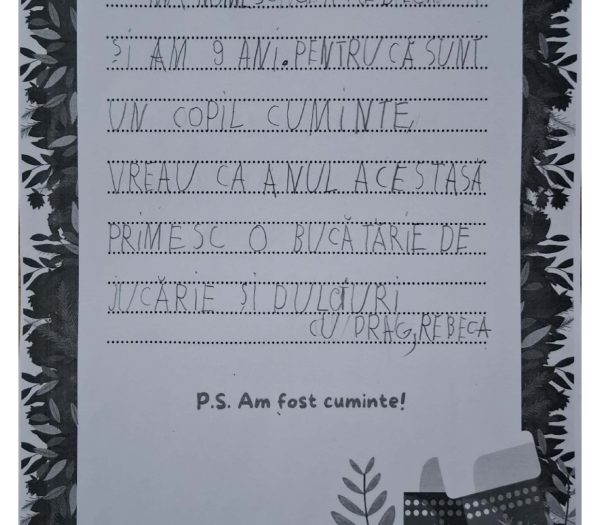 ȘI AM 9 ANI. PENTRU CĂ SUNT
UN COPIL CUMINTE
VREAU CA ANUL ACESTA SĂ
PRIMESC O BUCĂTĂRIE DE
JUCĂRIE ȘI DULCIURI
CU DRAG, REBECA
P.S. Am fost cuminte!